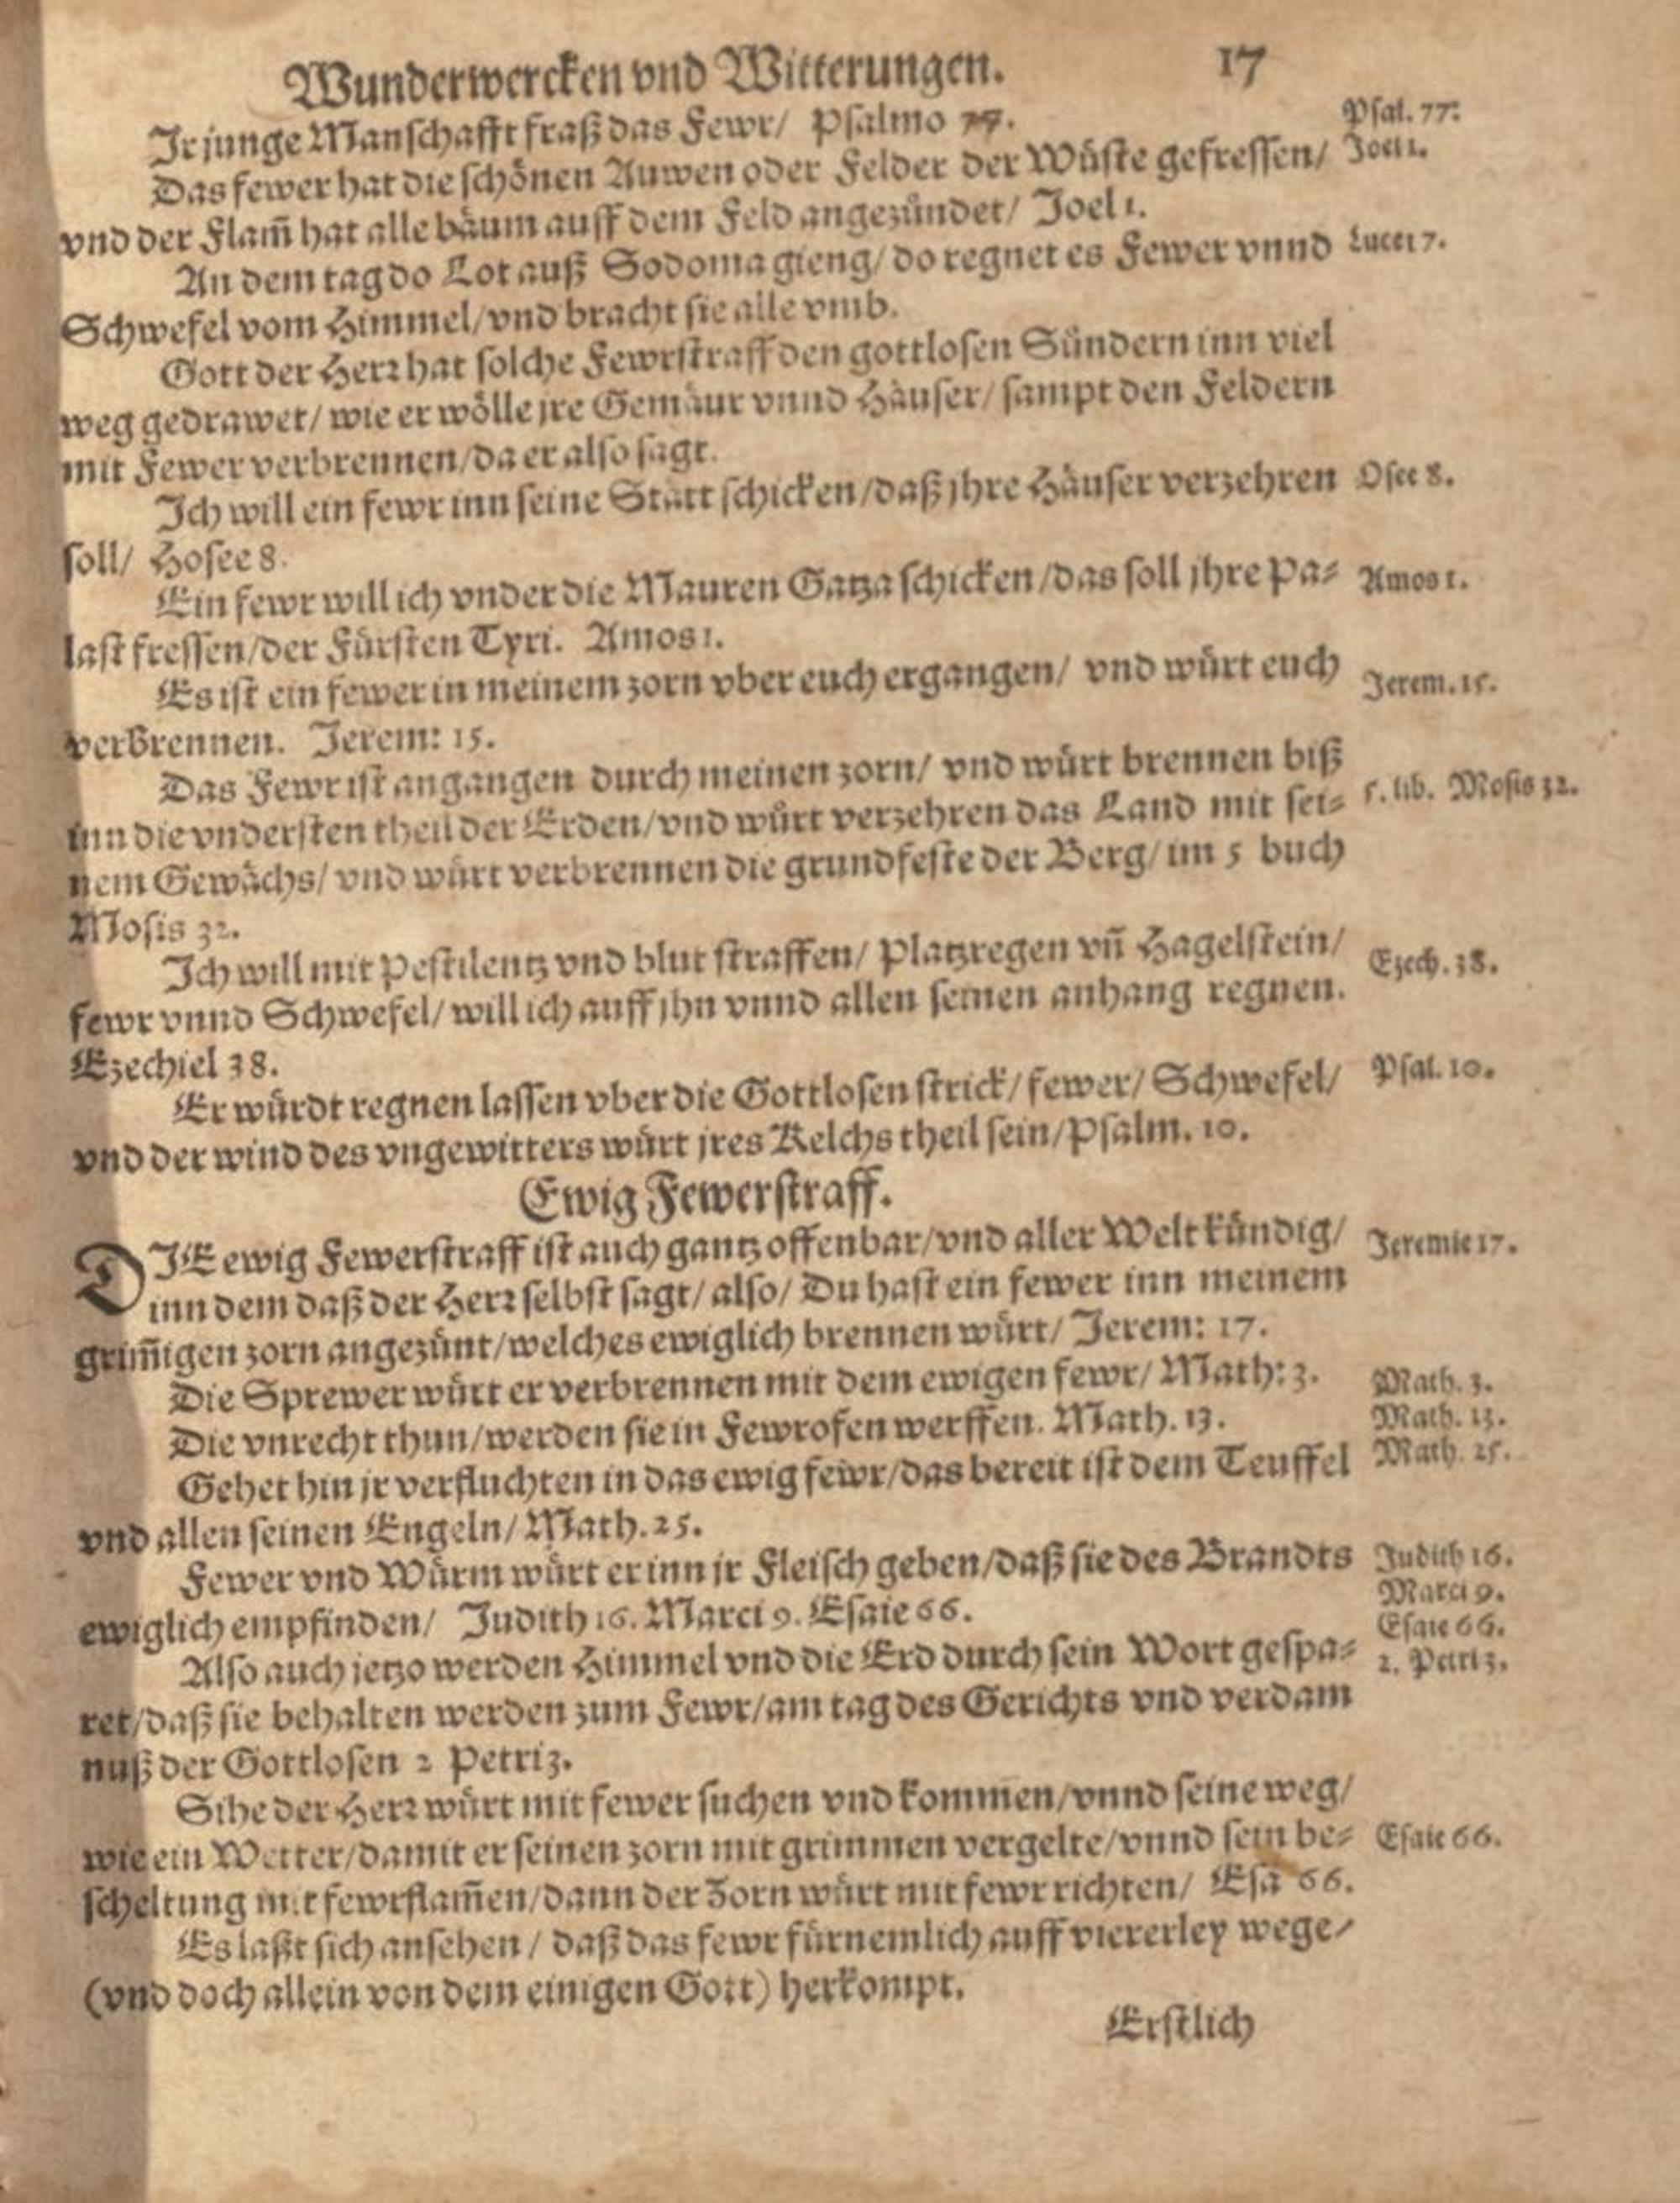 Wunderwercken vnd Witterungen. 17
Ir junge Manschafft fraß das Fewr/ Psalmo 77. Psal. 77.
Das fewer hat die schönen Auwen oder Felder der Wüste gefressen/ Joel 1.
vnd der Flam̃ hat alle bäum auff dem Feld angezündet/ Joel 1.
An dem tag do Lot auß Sodoma gieng/ do regnet es Fewer vnnd Luce 17.
Schwefel vom Himmel/ vnd bracht sie alle vmb.
Gott der Herr hat solche Fewrstraff den gottlosen Sündern inn viel
weg gedrawet/ wie er wölle jre Gemäur vnnd Häuser/ sampt den Feldern
mit Fewer verbrennen/ da er also sagt.
Ich will ein fewr inn seine Stätt schicken/ daß jhre Häuser verzehren Osee 8.
soll/ Hosee 8.
Ein fewr will ich vnder die Mauren Gatza schicken/ das soll jhre Pa⸗ Amos 1.
last fressen/ der Fürsten Tyri. Amos 1.
Es ist ein fewer in meinem zorn vber euch ergangen/ vnd würt euch Jerem. 15.
verbrennen. Jerem: 15.
Das Fewr ist angangen durch meinen zorn/ vnd würt brennen biß
inn die vndersten theil der Erden/ vnd würt verzehren das Land mit sei⸗ 5. lib. Mosis 32.
nem Gewächs/ vnd würt verbrennen die grundfeste der Berg/ im 5 buch
Mosis 32.
Ich will mit Pestilentz vnd blut straffen/ Platzregen vñ Hagelstein/ Ezech. 38.
fewr vnnd Schwefel/ will ich auff jhn vnnd allen seinen anhang regnen.
Ezechiel 38.
Er würdt regnen lassen vber die Gottlosen strick/ fewer/ Schwefel/ Psal. 10.
vnd der wind des vngewitters würt jres Kelchs theil sein/ Psalm. 10.
Ewig Fewerstraff.
DIE ewig Fewerstraff ist auch gantz offenbar/ vnd aller Welt kündig/ Jeremie 17.
inn dem daß der Herr selbst sagt/ also/ Du hast ein fewer inn meinem
grim̃igen zorn angezünt/ welches ewiglich brennen würt/ Jerem: 17.
Die Sprewer würt er verbrennen mit dem ewigen fewr/ Math: 3. Math. 3.
Die vnrecht thun/ werden sie in Fewrofen werffen. Math. 13. Math. 13.
Gehet hin jr verfluchten in das ewig fewr/ das bereit ist dem Teuffel Math. 25.
vnd allen seinen Engeln/ Math. 25.
Fewer vnd Würm würt er inn jr Fleisch geben/ daß sie des Brandts Judith 16.
Marci 9.
ewiglich empfinden/ Judith 16. Marci 9. Esaie 66. Esaie 66.
Also auch jetzo werden Himmel vnd die Erd durch sein Wort gespa⸗ 2. Petri 3.
ret/ daß sie behalten werden zum Fewr/ am tag des Gerichts vnd verdam
nuß der Gottlosen 2 Petri 3.
Sihe der Herr würt mit fewer suchen vnd kommen/ vnnd seine weg/
wie ein Wetter/ damit er seinen zorn mit grimmen vergelte/ vnnd sein be⸗ Esaie 66.
scheltung mit fewrflam̃en/ dann der Zorn würt mit fewr richten/ Esa 66.
Es laßt sich ansehen/ daß das fewr fürnemlich auff viererley wege/
(vnd doch allein von dem einigen Gott) herkompt.
Erstlich